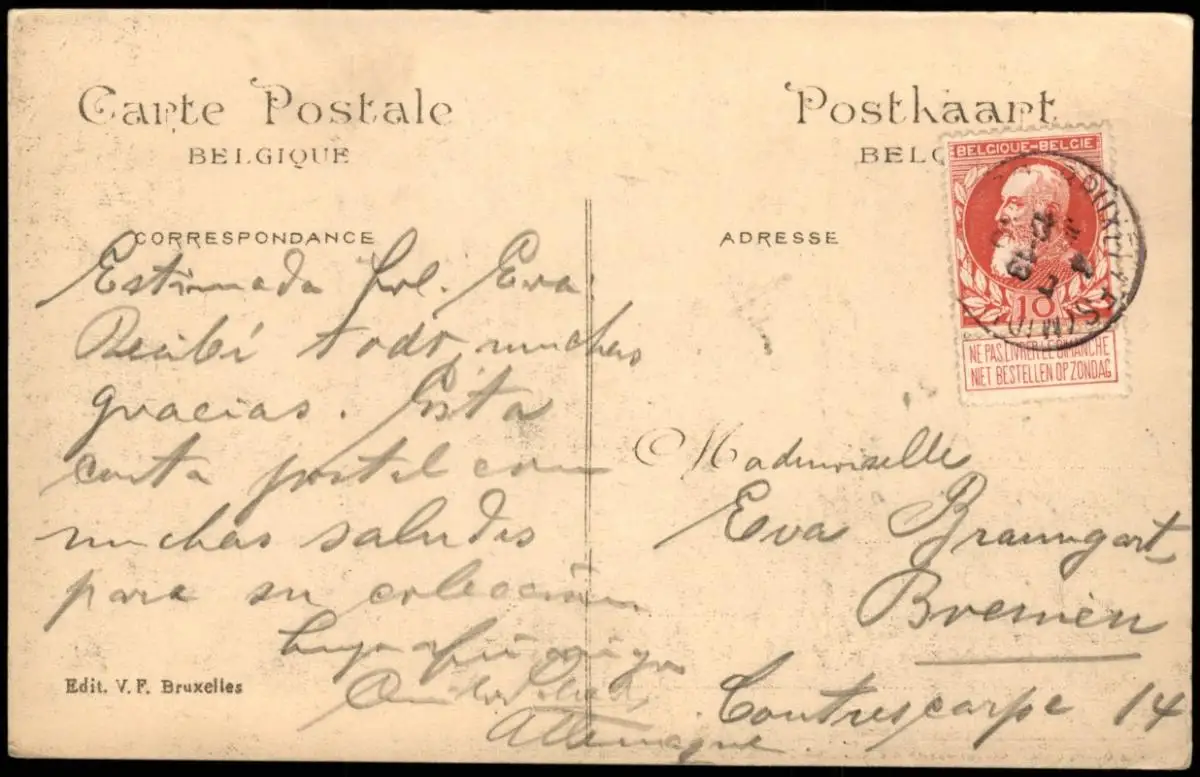 Carte Postale
BELGIQUE
Postkaart
BELG
CORRESPONDANCE
ADRESSE
BELGIQUE-BELGIE
10
NE PAS LIVRER LE DIMANCHE
NIET BESTELLEN OP ZONDAG
Estimada Eva
Recibí todo, muchas
gracias. Esta
carta postal con
muchas saludes
para su colección
Mademoiselle
Eva Braumgart
Bremen
Contrescarpe 14
Allemagne
Edit. V. F. Bruxelles